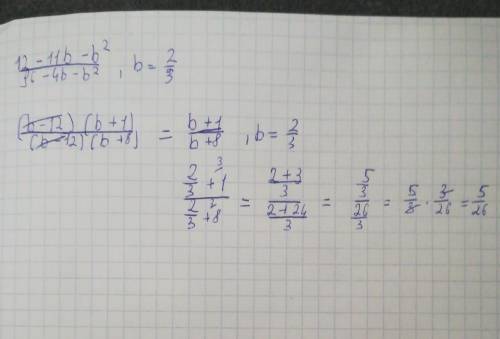 (12 - 11b - b²)/(96 - 4b - b²) , b = 2/3
((b-12)(b+1))/((b-12)(b+8)) = (b+1)/(b+8) , b = 2/3
(2/3 + 1)/(2/3 + 8) = ((2+3)/3)/((2+24)/3) = (5/3)/(26/3) = 5/3 · 3/26 = 5/26